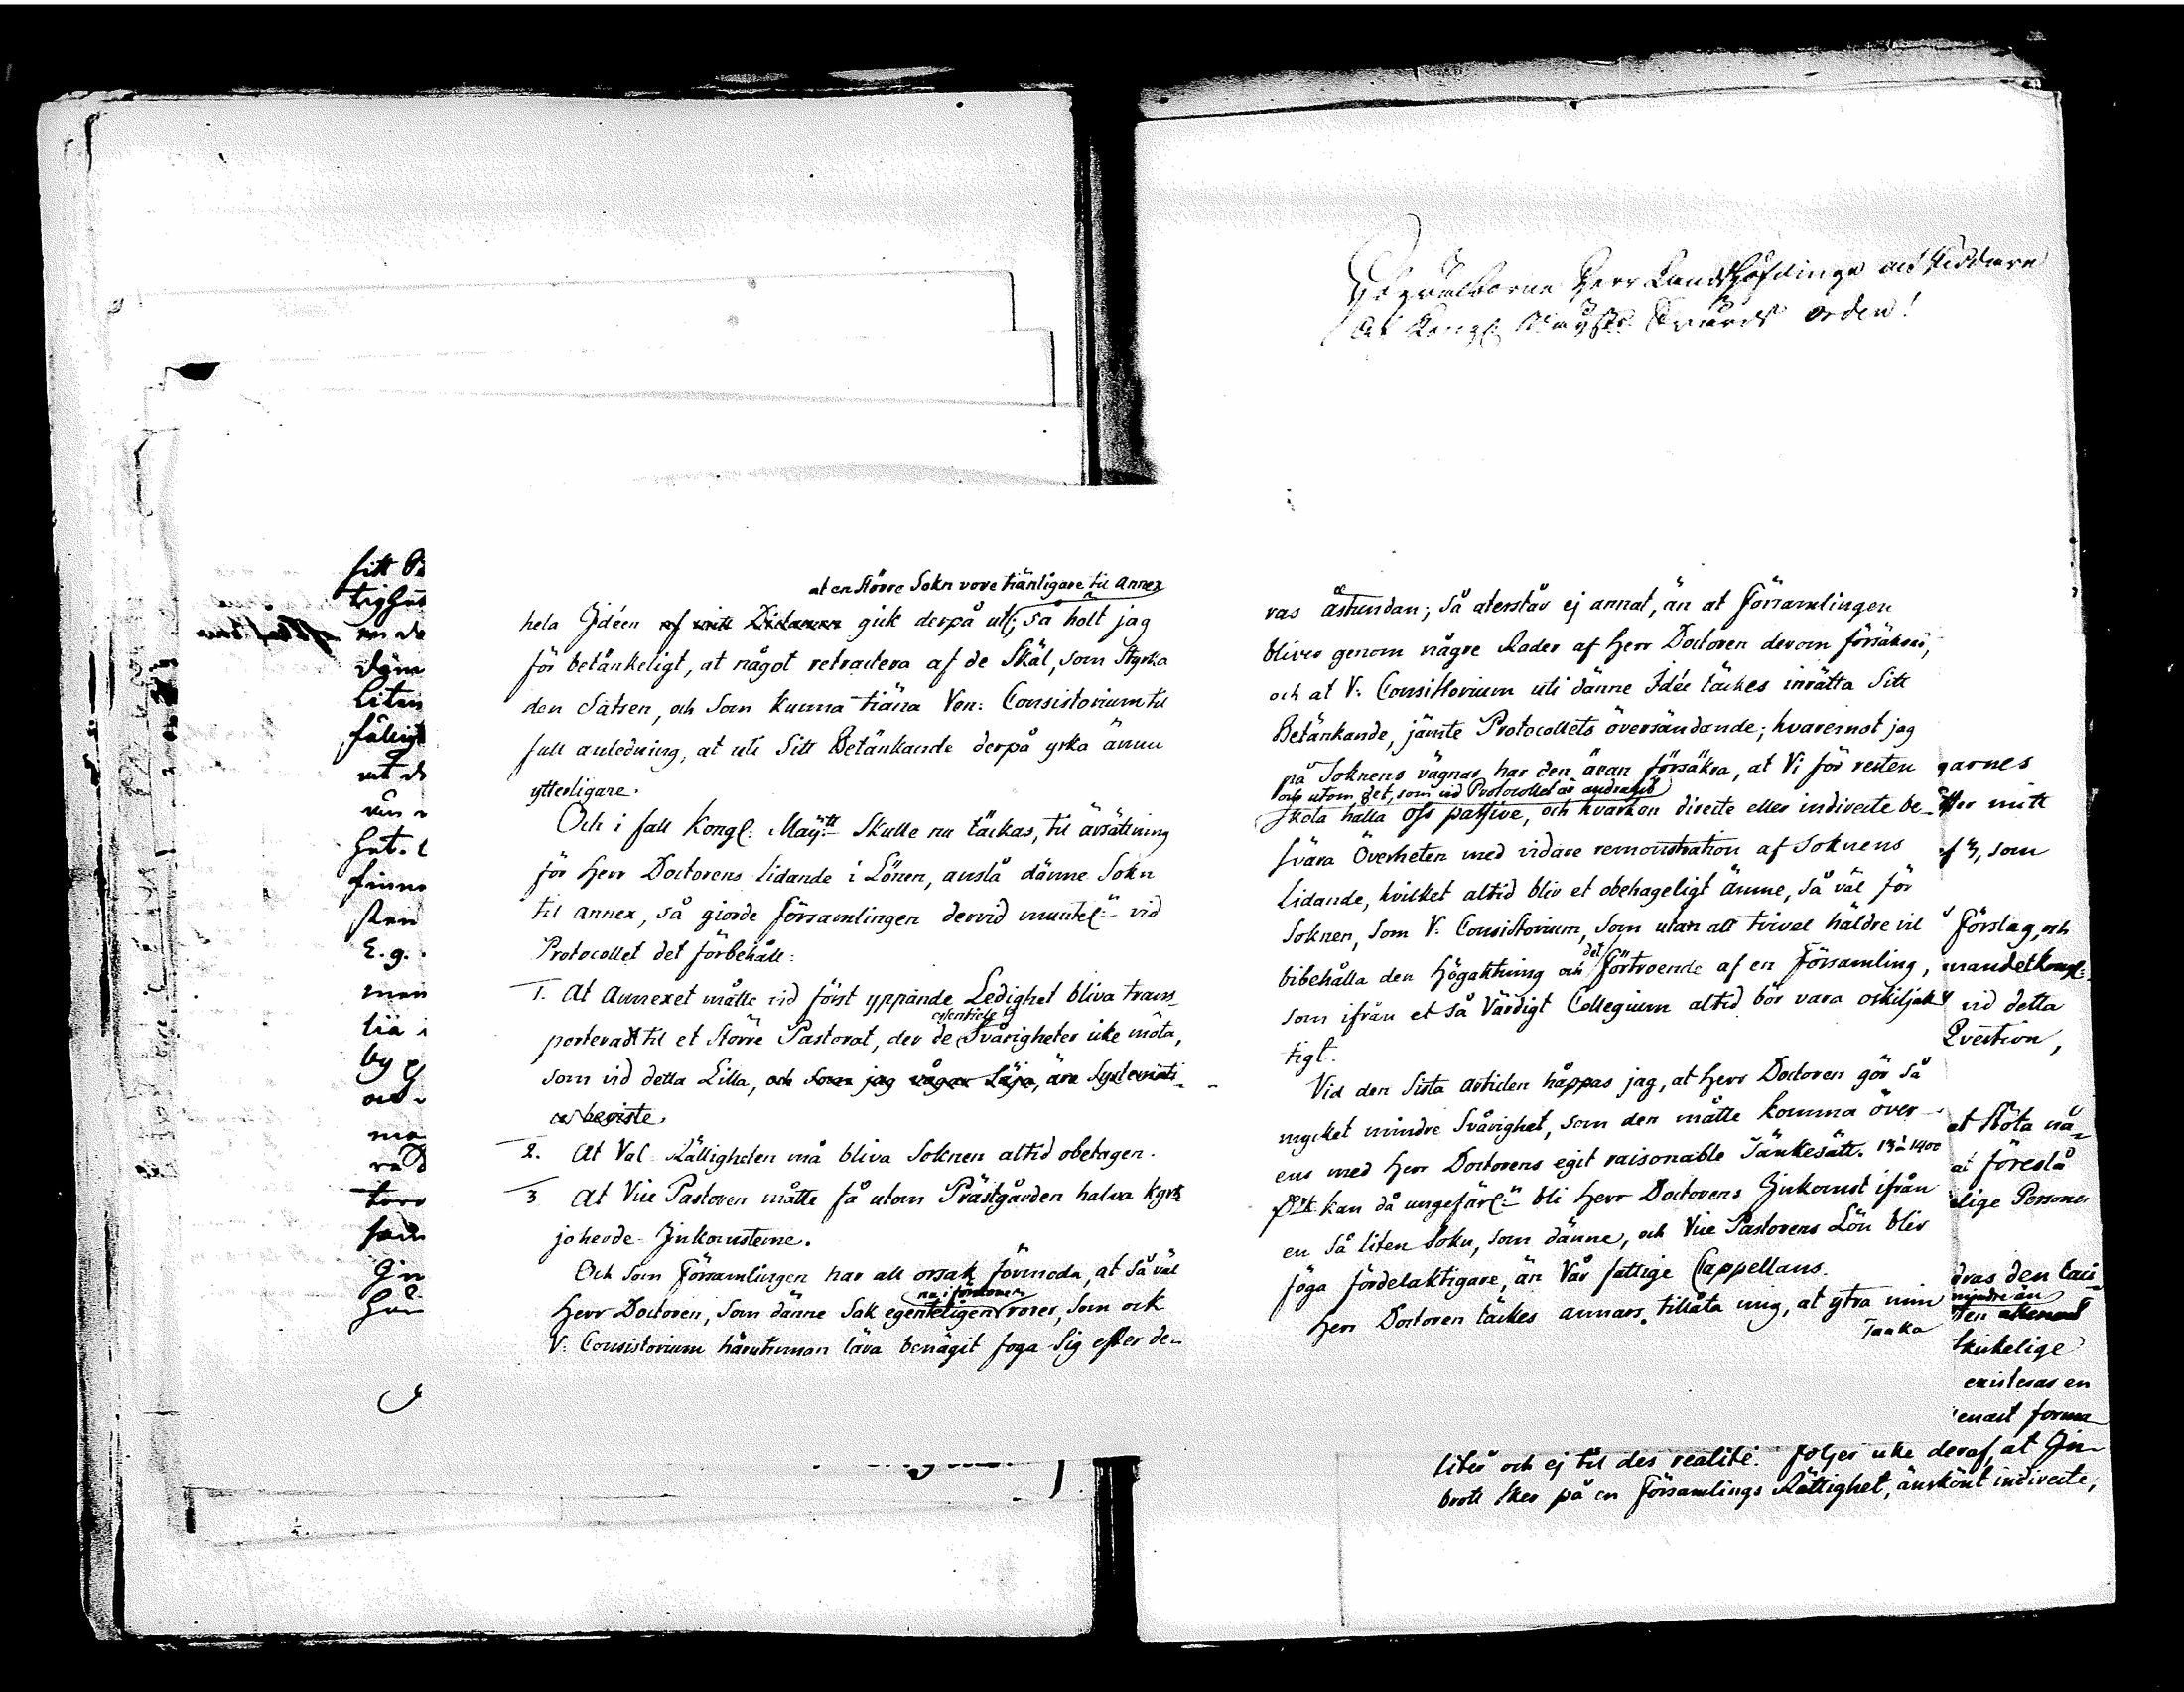 Högvälborne Herr Landshöfdinge och Riddare
af Kongl. Mayst:s Svärds orden!
sitt
tighet
en de
däm
liten
fälligt
at de
vin
het.
finne
sten
E.g.
men
tia
by
och
ma
hela Jdéen af mitt Dictamen gick derpå ut, at en större Sokn vore tiänligare til annex; så holt jag
för betänkeligt, at något retractera af de Skäl, som styrka
den Satsen, och som kunna tiäna Ven: Consistorium til
full anledning, at uti Sitt Betänkande derpå yrka ännu
ytterligare.
Och i fall Kongl: Maÿ:tt Skulle nu täckas, til ärsättning
för Herr Doctorens lidande i Lönen, anslå dänne Sokn
til annex, så giorde församlingen dervid muntel:n vid
Protocollet det förbehåll:
1. At Annexet måtte vid först yppande Ledighet bliva trans-
porterad til et större Pastorat, der de essentiele Svårigheter icke möta,
som vid detta Lilla, och som jag vågar säja, äro Systemati-
ce beviste.
2. At Val-Rättigheten må bliva Soknen altid obetagen.
3 At Vice Pastoren måtte få utom Prästgården halva Kyrk
joherde-Jnkomsterne.
Och som Församlingen har all orsak förmoda, at så väl
Herr Doctoren, som dänne Sak egenteligen nu i förstonen rörer, som ock
V: Consistorium härutinnan lära benägit foga Sig efter de-
ras åstundan; så återstår ej annat, än at Församlingen
bliver genom någre Rader af Herr Doctoren derom försäkrad,
och at V: Consistorium uti dänne Idée täckes inrätta Sitt
Betänkande, jämte Protocollets översändande; hvaremot jag
på Soknens vägnar har den äran försäkra, at Vi för resten
och utom det, som vid Protocollet är andragit
skola hålla oss passive, och hvarken directe eller indirecte be-
svära Överheten med vidare remonstration af Soknens
lidande, hvilket altid blir et obehageligt ämne, så väl för
Soknen, som V: Consistorium, som utan alt tvivel häldre vil
bibehålla den Högaktning och det Förtroende af en Församling,
som ifrån et så Värdigt Collegium altid bör vara oskiljak
tigt.
Vid den Sista articlen håppas jag, at Herr Doctoren gör så
mycket mindre Svårighet, som den måtte komma över-
ens med Herr Doctorens egit raisonable Tänkesätt. 13 à 1400
kan då ungefärl:n bli Herr Doctorens Jnkomst ifrån
en så liten Sokn, som dänne, och Vice Pastorens Lön blir
föga fördelaktigare, än Vår fattige Cappellans.
Herr Doctoren täckes annars tillåta mig, at ytra min
Tanka
garnes
mitt
som
Förslag, och
vid detta
Qvestion,
et stöta nå-
at föreslå
elige Personer
dras den
mindre än
skickelige
existeras en
forma
litér och ej til des realité. Följer icke deraf, at Jn-
brott sker på en Församlings Rättighet, änskönt indirecte,